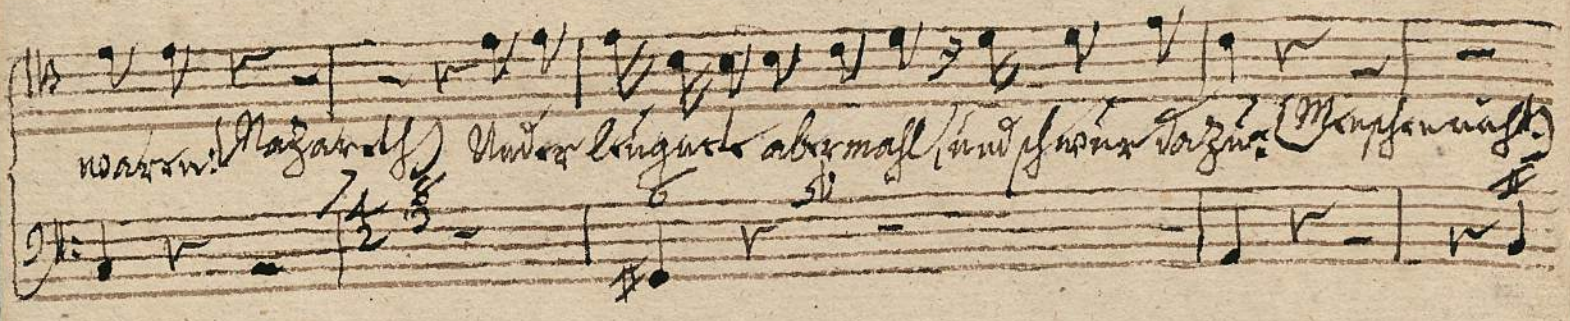 waren: (Nazareth) Und er leugnete abermahl, und schwur dazu: (Menschen nicht.)
7 4 2 8 3 6 5